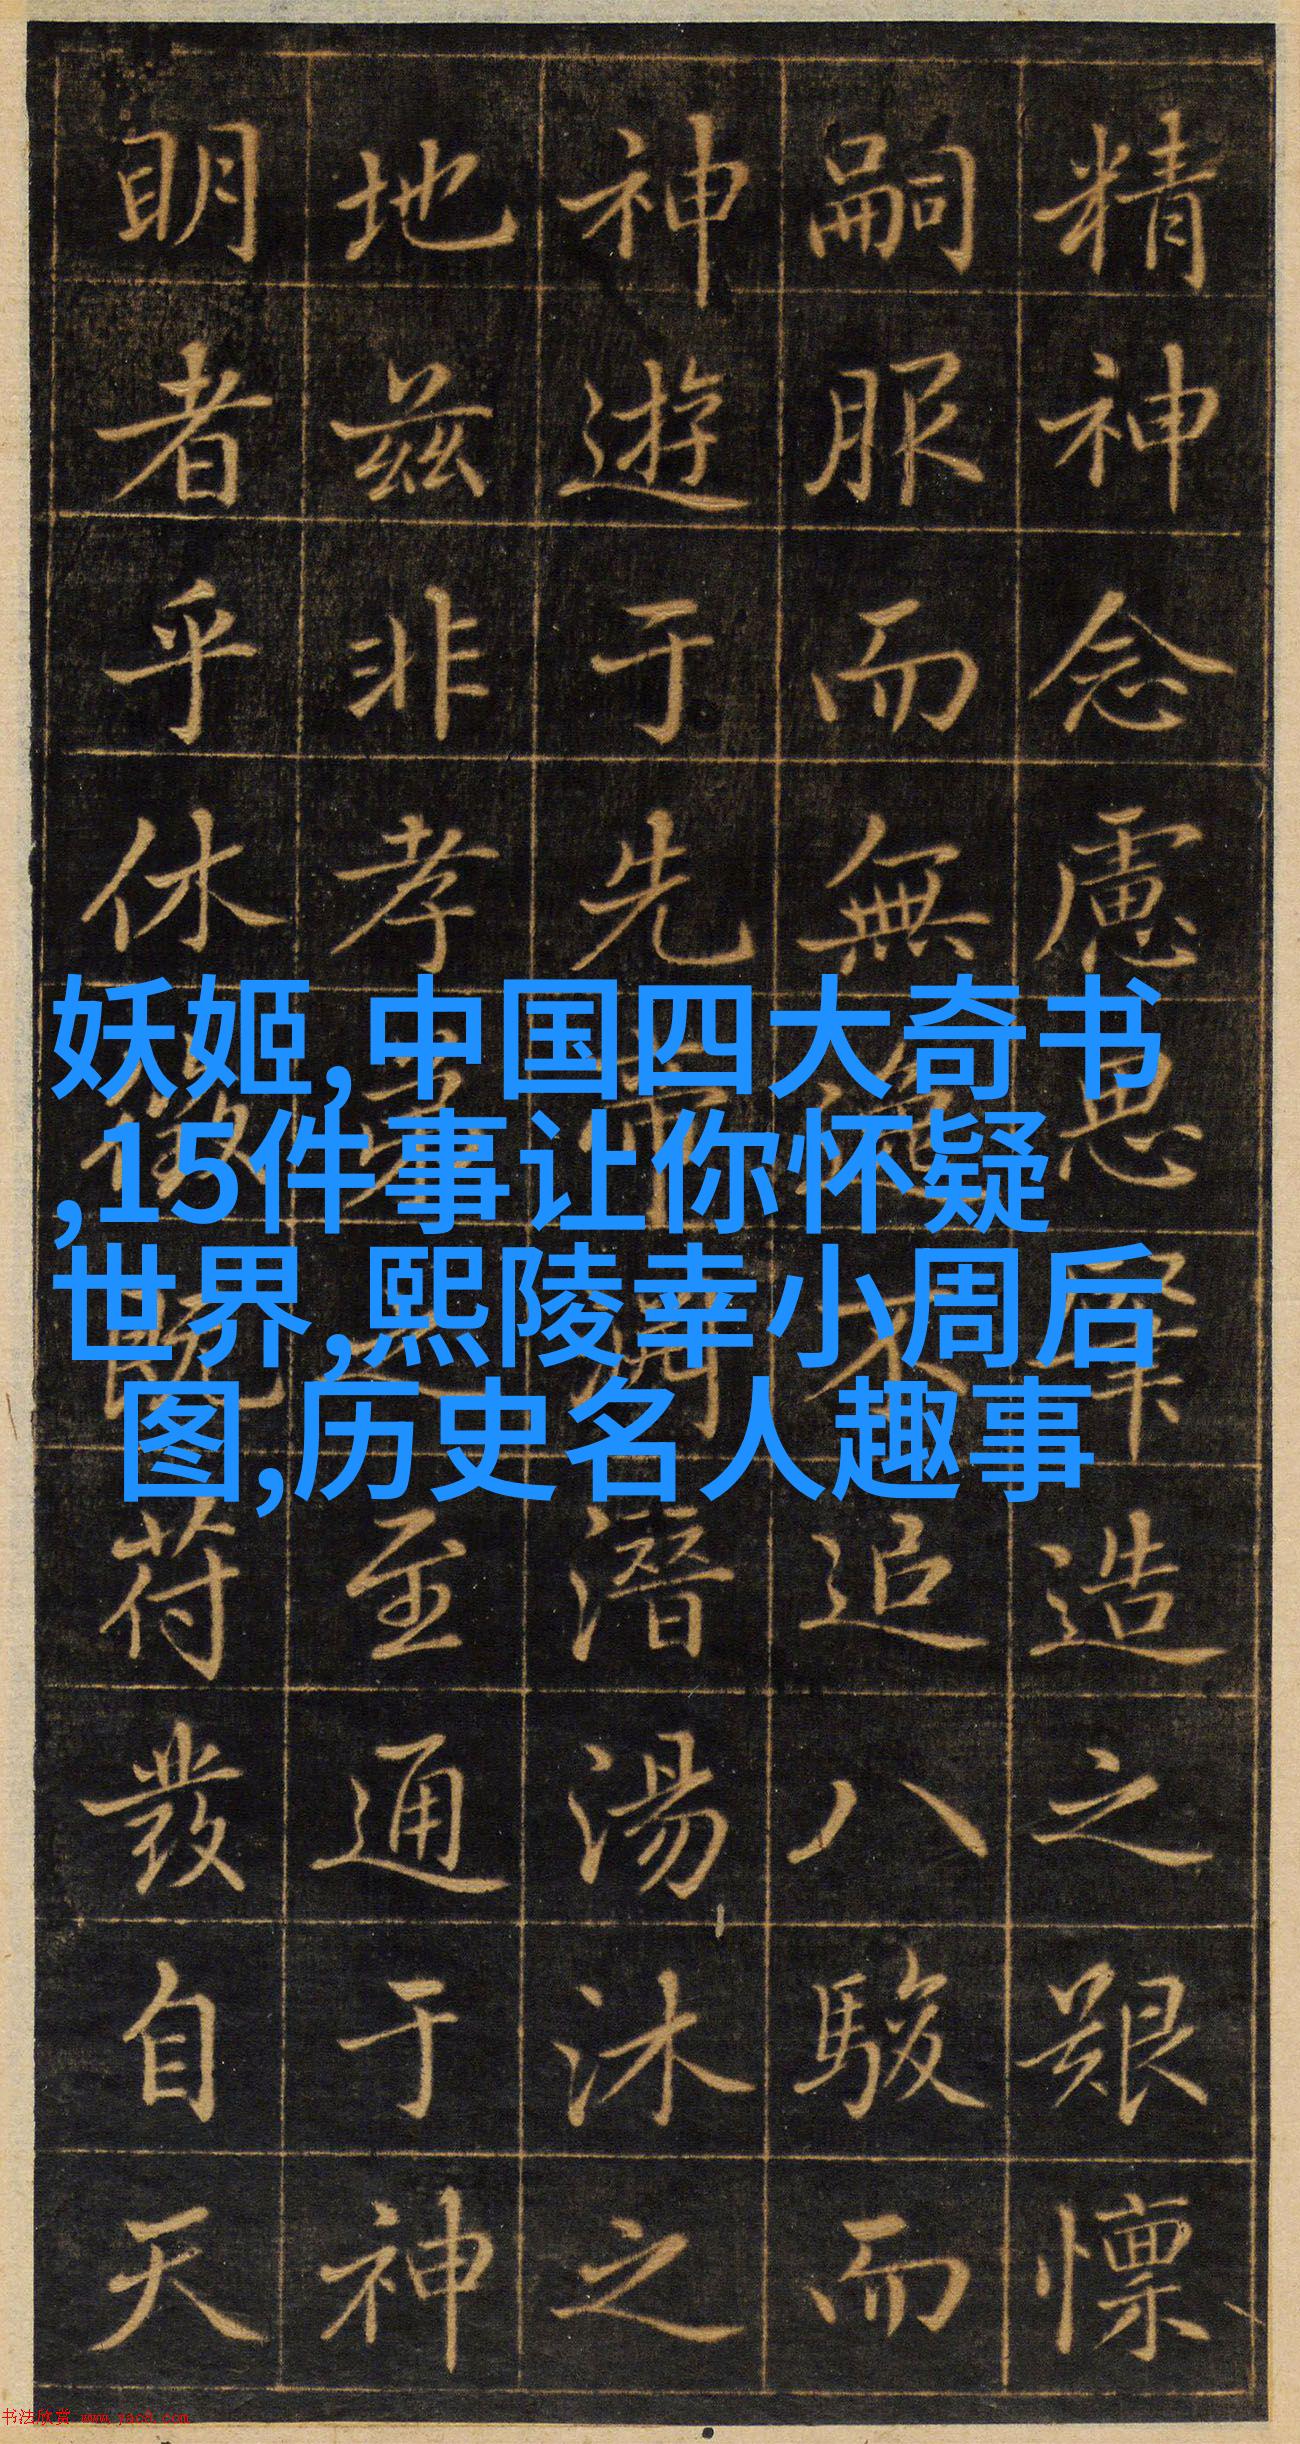 精神念慮思肇造之艱懍
嗣服而無逸不追八駿而
神遊于先帝潛湯沐之
地茲非孝之至通于神
明者乎休徵既苻發自天
妖姬,中国四大奇书
,15件事让你怀疑
世界,熙陵幸小周后
图,历史名人趣事
书法欣赏 www.yac8.com